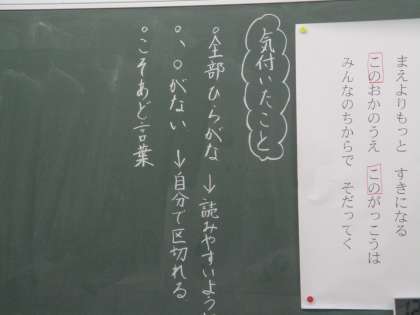 まえよりもっと すきになる
このおかのうえ このがっこうは
みんなのちからで そだってく
気付いたこと
○全部ひらがな → 読みやすいように
○、。がない → 自分で区切れる
○こそあど言葉